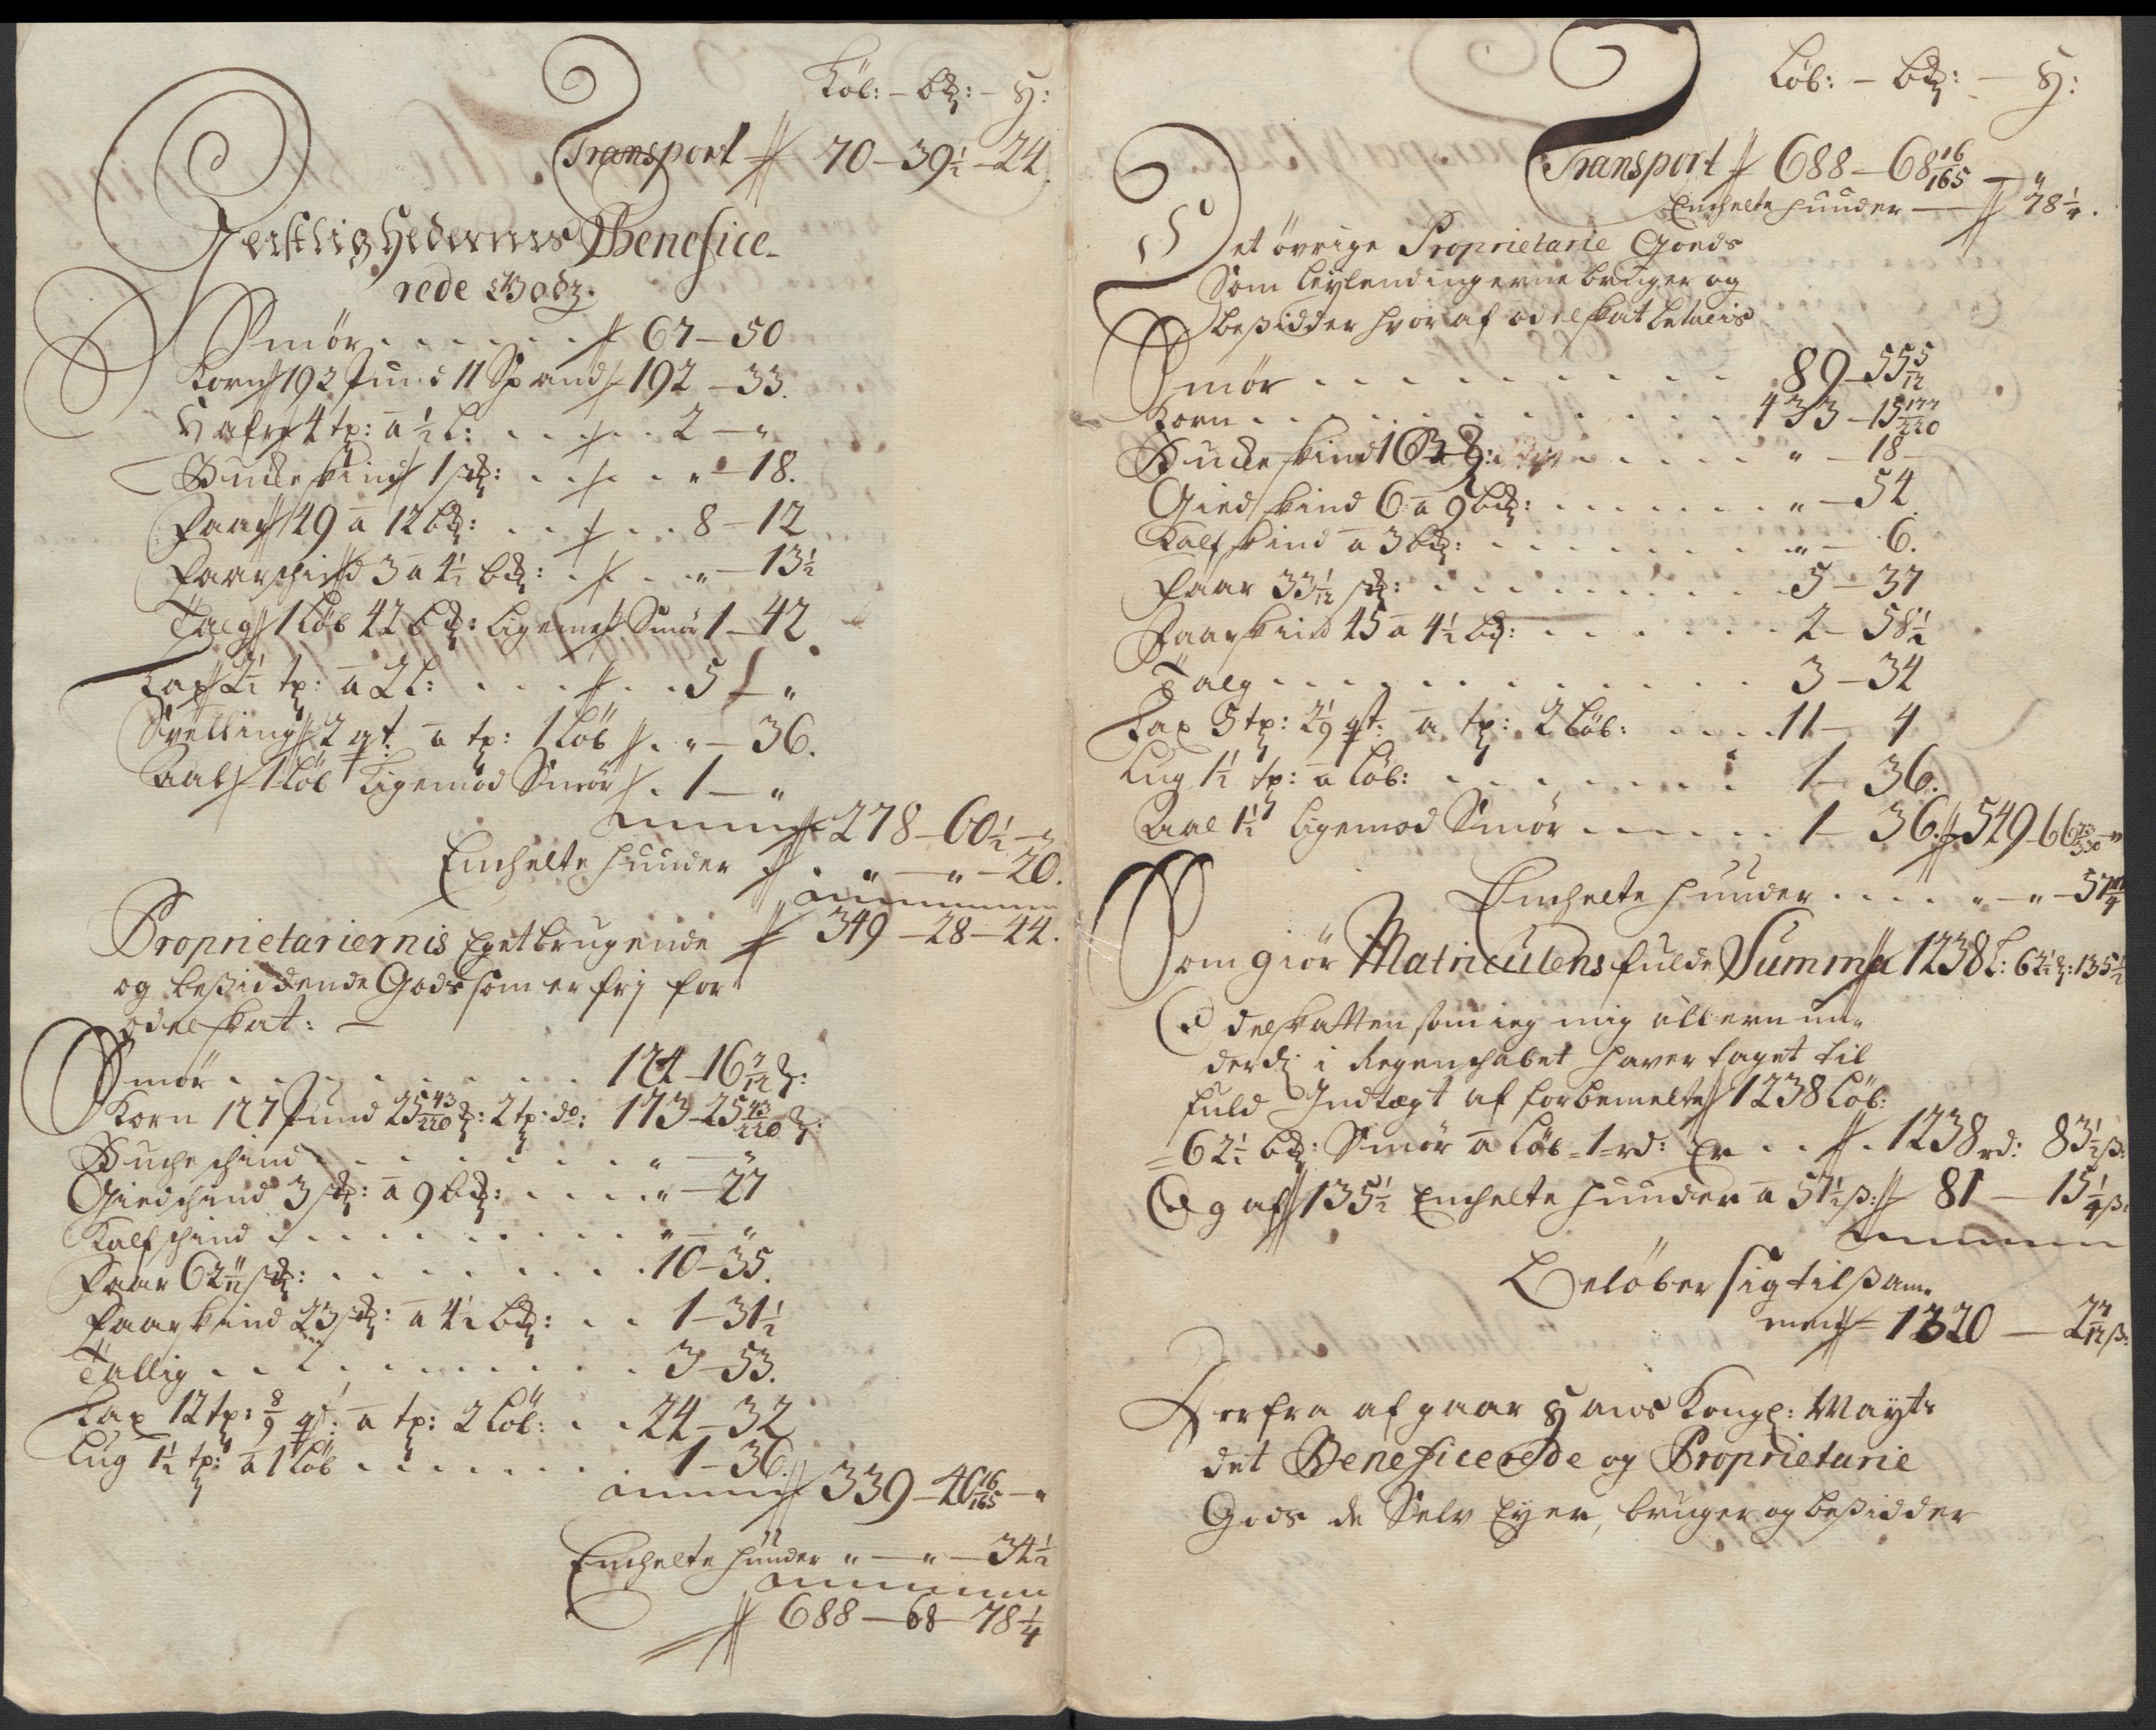 Løb: – bd: – H:
Transport 70 – 39½ – 24.
Geistlighedernis Benefice-
rede Godz.
Smör . . . . . . 67 – 50
Korn 192 Pund 11 Spand 192 – 33.
Hafre 4 tp: a ½ L: . . . . 2 – „
Bucke skind 1 stk: . . . . „ – 18.
Faar 49 a 12 bd: . . . . 8 – 12
Faarschind 3 a 4½ bd: . . . . „ – 13½
Talg 1 Løb 42 bd: ligemod Smör 1 – 42
Lax 2½ tp: a 2 L: . . . . 5 – „
Svelling 2 qt: a tp: 1 Løb . „ – 36.
Aal 1 Løb Ligemod Smör . 1 – „
278 – 60½ – „
Enchelte Huuder . „ – „ – 20.
349 – 28 – 44.
Proprietariernis Eget brugende
og besiddende Gods som er frj for
odelskat: –
Smör . . . . . . . 124 – 16 7/12 :
Korn 177 Pund 25 43/220 : 2 tp: do: 173 – 25 43/220 :
Bucheschind . . . . . . „ – „
Giedschind 3 stk: a 9 bd: . . . . „ – 27
Kalfschind . . . . . . . „ – „
Faar 62 stk: . . . . . . . 10 – 35.
Faarskind 23 stk: a 4½ bd: . . 1 – 31½
Tallig . . . . . . . . 3 – 53.
Lax 12 tp: 8/9 qt: a tp: 2 Løb: . . 24 – 32
Lug 1½ tp: a 1 Løb . . . . . . 1 – 36.
339 – 40 16/165 – „
Enchelte Huuder „ – „ – 34½
688 – 68 – 78¼
Løb: – bd: – H:
Transport 688 – 68 16/165 – „
Enchelte Huuder – 78¼.
Det övrige Proprietarie Goeds
Som Leylendingerne bruger og
besidder hvor af odelskat betalis
Smör . . . . . . . . . 89 – 55 5/12
Korn . . . . . . . . . 433 – 15 177/220
Bucke skind 1 . . . . . „ – 18 –
Giedskind 6 a 9 bd: . . . . . . „ – 54
Kalfskind a 3 bd: . . . . . . . „ – 6.
Faar 33 1/12 stk: . . . . . . . . 5 – 37
Faarskind 45 a 4½ bd: . . . . . . 2 – 58½
Talg . . . . . . . . . . . 3 – 34
Lax 5 tp: 2 1/9 qt. a tp: 2 Løb: . . . . 11 – 4
Lug 1½ tp: a Løb: . . . . . . . 1 – 36.
Aal 1½ ligemod Smör . . . . . 1 – 36. 549 – 66 73/330 – „
Enchelte Huuder . . . . „ – „ – 57¼
Som giör Matriculens fulde Summa 1238 L: 62½ : 135½
Odelskatten som ieg mig allerun„
derd: i Regenschabet haver taget til
fuld Indtægt af forbemelte 1238 Løb:
62½ bd: Smör a Løb 1 rd: Er . . . 1238 rd: 83½ ß:
Og af 135½ Enchelte Huuder a 57½ ß: 81 – 15¼ ß:
Beløber sig tilsam„
men 1320 – 2 7/12 ß:
Herfra afgaar Hans Kongl: Mayts
det Beneficerede og Proprietarie
Gods de Selv Eyer, bruger og besidder